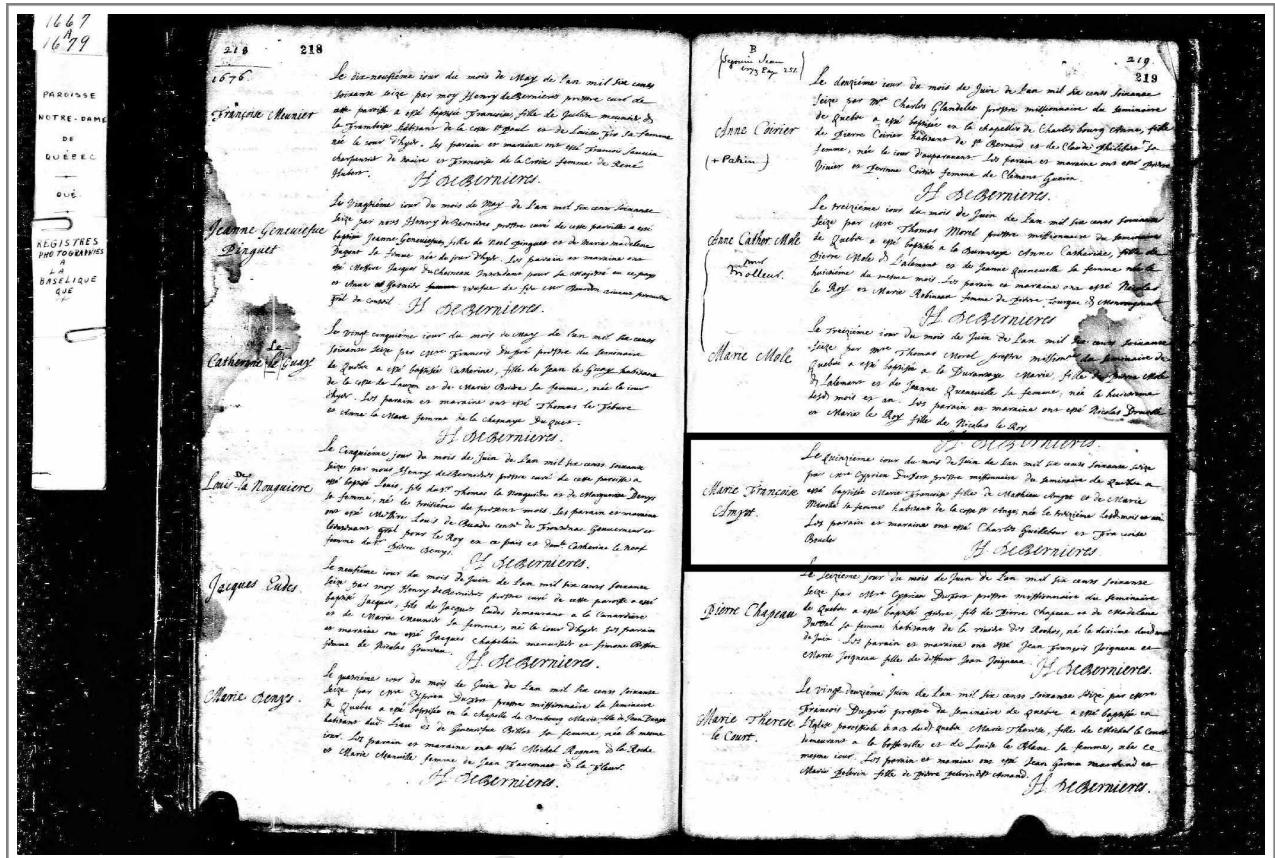 1667
A
1679
PAROISSE
NOTRE-DAME
DE
QUÉBEC
QUÉ.
REGISTRES
PHOTOGRAPHIES
A
LA
BASELIQUE
QUE
218 218
1676.
Françoise Meunier
Le dix-neufiéme iour du mois de May de l'an mil six cens
soixante seize par moy Henry de Bernieres prestre curé de
cette paroisse a esté baptisée Françoise, fille de Julien meunier dt
la Framboise habitant de la coste St Paul et de Louise sa femme
née le iour d'hyer. Les parain et maraine ont esté François
charpentier de navire et Françoise de la Croix femme de René
Hubert.
H. de Bernieres.
Jeanne Geneviefve
Pinguet
Le vingtiéme iour du mois de May de l'an mil six cens soixante
seize par nous Henry de Bernieres prestre curé de cette paroisse a esté
baptisée Jeanne Geneviefve, fille de Noel Pinguet et de Marie madeleine
sa femme née du iour d'hyer. Les parain et maraine ont
esté Messire Jacques du Chesneau Intendant pour sa Majesté en ce pays
et Anne Gasnier veufve de feu Mr Bourdon vivant procureur
gñal du conseil
H. de Bernieres.
Le
Catherine le Guay
Le vingt cinquiéme iour du mois de May de l'an mil six cens
soixante seize par Mre François Dupré prestre du seminaire
de Quebec a esté baptisée Catherine, fille de Jean le Guay habitant
de la coste de Lauzon et de Marie sa femme, née le iour
d'hyer. Les parain et maraine ont esté Thomas le Febure
et Anne la Mare femme de la Chesnaye Duquet.
H. de Bernieres.
De
Louis la Nouguiere
Le Cinquiéme jour du mois de Juin de l'an mil six cens soixante
seize par nous Henry de Bernieres prestre curé de cette paroisse a
esté baptisé Louis, fils du Sr Thomas la Nouguiere et de Marguerite Denys
sa femme, né le troisiéme du present mois. Les parain et maraine
ont esté Messire Louis de Buade comte de Frontenac Gouverneur et
lieutenant gñal pour le Roy en ce païs et damlle Catherine le Neuf
femme du Sr Pierre Denys.
H. de Bernieres.
Jacques Eudes.
Le neufiéme iour du mois de Juin de l'an mil six cens soixante
seize par moy Henry de Bernieres prestre curé de cette paroisse a esté
baptisé Jacques, fils de Jacques Eudes demeurant a la Canardiere
et de Marie Meunier sa femme, né le iour d'hyer. Les parain
et maraine ont esté Jacques Chapelain et Simone
femme de Nicolas Gourdau.
H. de Bernieres.
Marie Denys.
Le quatriéme iour du mois de Juin de l'an mil six cens soixante
seize par Mre Cyprien Dufort prestre missionnaire du seminaire
de Quebec a esté baptisée en la chapelle de Marie, fille de Jean Denys
habitant dud. Lieu et de Geneviefve Billot sa femme, née le mesme
iour. Les parain et maraine ont esté Michel dt la Roche
et Marie femme de Jean dt la Fleur.
H. de Bernieres.
B
219.
219
Anne Coirier
(+ Pahin)
Le douziéme iour du mois de Juin de l'an mil six cens soixante
seize par Mr Charles Glandelet prestre missionnaire du seminaire
de Quebec a esté baptisée en la chapelle de Charlesbourg Anne, fille
de Pierre Coirier habitant de St Bernard et de Claude Philiber sa
femme, née le iour d'auparavant. Les parain et maraine ont esté Pierre
Vivier et Perinne Coirier femme de Clement Guerin.
H. de Bernieres.
Anne Cather Mole
pour
Molleur.
Le treiziéme iour du mois de Juin de l'an mil six cens soixante
seize par Mre Thomas Morel prestre missionnaire du seminaire
de Quebec a esté baptisée a la Durantaye Anne Catherine, fille de
Pierre Mole dt Lalemant et de Jeanne Queneville sa femme née le
huitiéme du mesme mois. Les parain et maraine ont esté Nicolas
le Roy et Marie Robineau femme de Pierre
H. de Bernieres
Marie Mole
Le treiziéme iour du mois de Juin de l'an mil six cens soixante
seize par Mre Thomas Morel prestre missionre du seminaire de
Quebec a esté baptisée a la Durantaye Marie, fille de Pierre Mole
dt Lalemant et de Jeanne Queneville sa femme, née le huitiéme
desd. mois et an. Les parain et maraine ont esté Nicolas
et Marie le Roy fille de Nicolas le Roy
H. de Bernieres.
Marie Françoise
Amyot.
Le quinziéme iour du mois de Juin de l'an mil six cens soixante seize
par Mre Cyprien Dufort prestre missionnaire du seminaire de Quebec a
esté baptisée Marie Françoise fille de Mathieu Amyot et de Marie
Miville sa femme habitans de la coste St Ange, née le treiziéme desd. mois et an
Les parain et maraine ont esté Charles Guillebour et Françoise
Boucher
H. de Bernieres
Pierre Chapeau
Le seiziéme jour du mois de Juin de l'an mil six cens soixante
seize par Mre Cyprien Dufort prestre missionnaire du seminaire
de Quebec a esté baptisé Pierre, fils de Pierre Chapeau et de Madeleine
Duval sa femme habitans de la riviere des Roches, né le dixiéme
de Juin. Les parain et maraine ont esté Jean François Joigneau et
Marie Joigneau fille de deffunt Jean Joigneau.
H. de Bernieres.
Marie Therese
le Court.
Le vingt deuxiéme Juin de l'an mil six cens soixante seize par Mre
François Dupré prestre du seminaire de Quebec a esté baptisée en
l'Eglise paroissiale dud. Quebec Marie Therese, fille de Michel le Court
demeurant a la basseville et de Louise le Blanc sa femme, née ce
mesme iour. Les parain et maraine ont esté Jean Garros marchand et
Marie Pelerin fille de Pierre Pelerin dt St Amand.
H. de Bernieres.